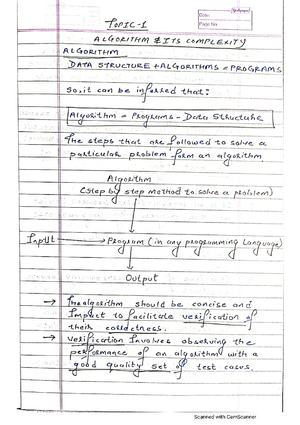 Date:
Page No.
TOPIC-1
ALGORITHM & ITS COMPLEXITY
ALGORITHM
DATA STRUCTURE + ALGORITHMS = PROGRAMS
So, it can be inferred that:
Algorithm = Programs - Data Structure
The steps that are followed to solve a
particular problem form an algorithm
Algorithm
(step by step method to solve a problem)
Input → Program (in any programming language)
Output
→ The algorithm should be concise and
to facilitate verification of
their correctness.
→ verification Involves observing the
performance of an algorithm with a
good quality set of test cases.
Scanned with CamScanner